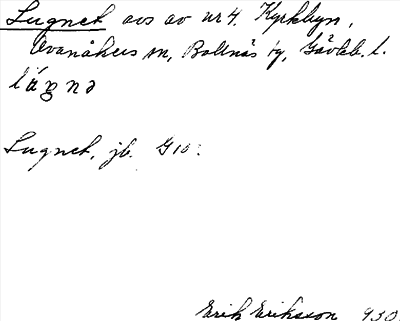 Lugnet avs av nr 4. Kyrkbyn,
Ovanåkers sn, Bollnäs tg, Gävleb. l.
Lugnet, jb. G10:
Erik Eriksson 930.